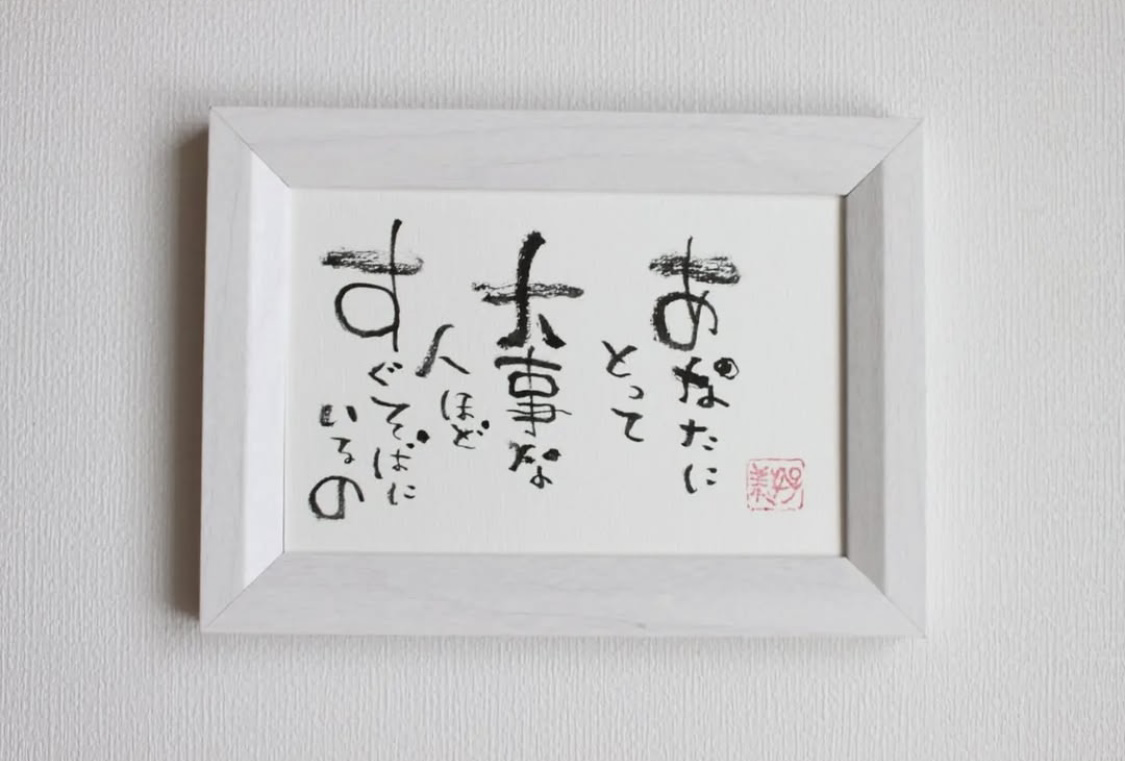 あなたに
とって
大事な
人ほど
すぐそばに
いるの